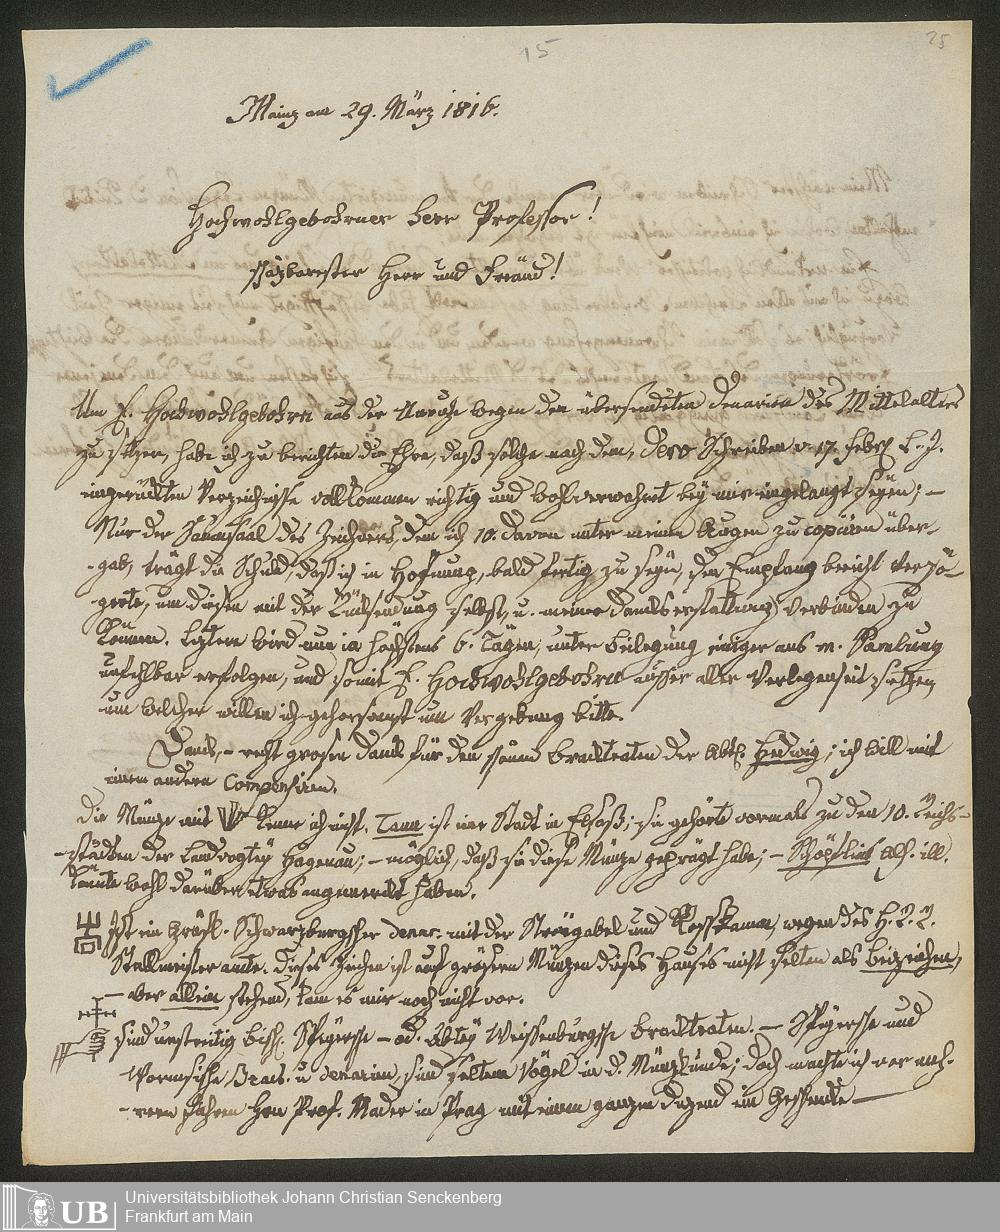 15
25
Mainz am 29. März 1816.
Hochwohlgebohrner Herr Professor!
Schäzbarester Herr und Freünd!
Um E. Hochwohlgebohrn aus der Unruhe wegen den übersendeten Denarien des Mittelalters
zu sezen, habe ich zu berichten die Ehre, daß solche nach dem, Dero Schreiben v. 17. Febr. l. J.
eingerückten Verzeichnisse vollkommen richtig und wohlverwahret bey mir eingelangt seyen; –
Nur der Saumsaal des Zeichners, dem ich 10. davon unter meinen Augen zu copiren über-
gab, trägt die Schuld, daß ich in Hofnung, bald fertig zu seyn, den Empfang bericht verzö-
gerte, um diesen mit der Rücksendung selbst, u. meiner Danks erstattung verbinden zu
können. Leztere wird nun in höchstens 6. Tägen, unter Beilegung einiger aus m. Samlung
unfehlbar erfolgen, und somit E. Hochwohlgebohrn ausser aller Verlegenheit sezen
um welcher willen ich gehorsamst um Vergebung bitte.
Dank, – recht grosen Dank für den schönen Bracteaten der Abt. Hedwig; ich will mit
einem andern Compensiren.
Die Münze mit kenne ich nicht. Tann ist eine Stadt in Elsaß; sie gehörte vormals zu den 10. Reichs-
städten der Landvogtey Hagenau; – möglich, daß sie diese Münze geprägt habe; – Schöpflins Als. ill.
könnte wohl darüber etwas angemerkt haben.
Ist ein Gräfl. Schwarzburgscher denar. mit der Streügabel und Rosskamm, wegen des H. R. R.
Stallmeister amte. Dieses Zeichen ist auf grösern Münzen dieses Hauses nicht selten als Beizeichen,
– aber allein stehend, kam es mir noch nicht vor.
sind unstreitig Bisch. Speyersche – od. Abtey Weissenburgsche Bracteaten. – Speyersche und
Wormsische Bract. u. denarien, sind seltene Vögel in d. Münzkunde; doch machte ich vor meh-
rern Jahren Hrn Prof. Mader in Prag mit einem ganzen duzend ein Geschenke –
Universitätsbibliothek Johann Christian Senckenberg
Frankfurt am Main
UB